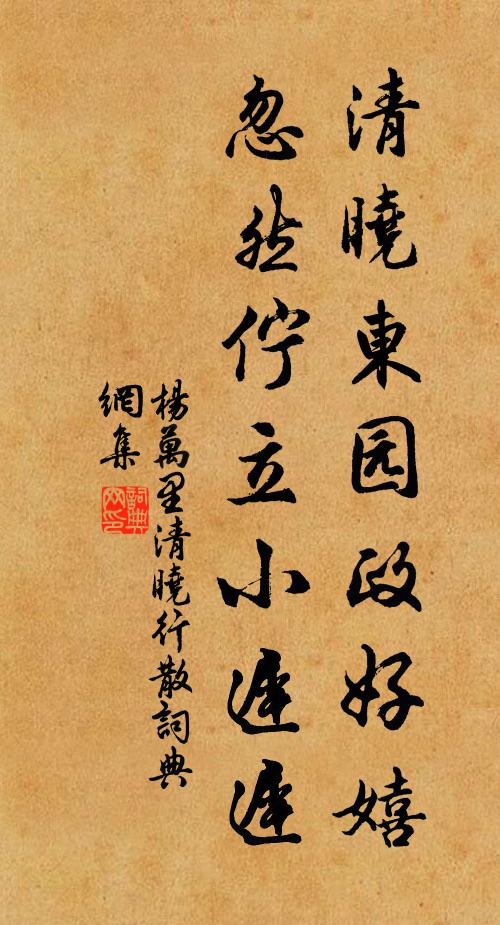 清曉東园政好嬉
忽然佇立小遲遲
楊萬里清曉行散詞典
網集
詞典
网印